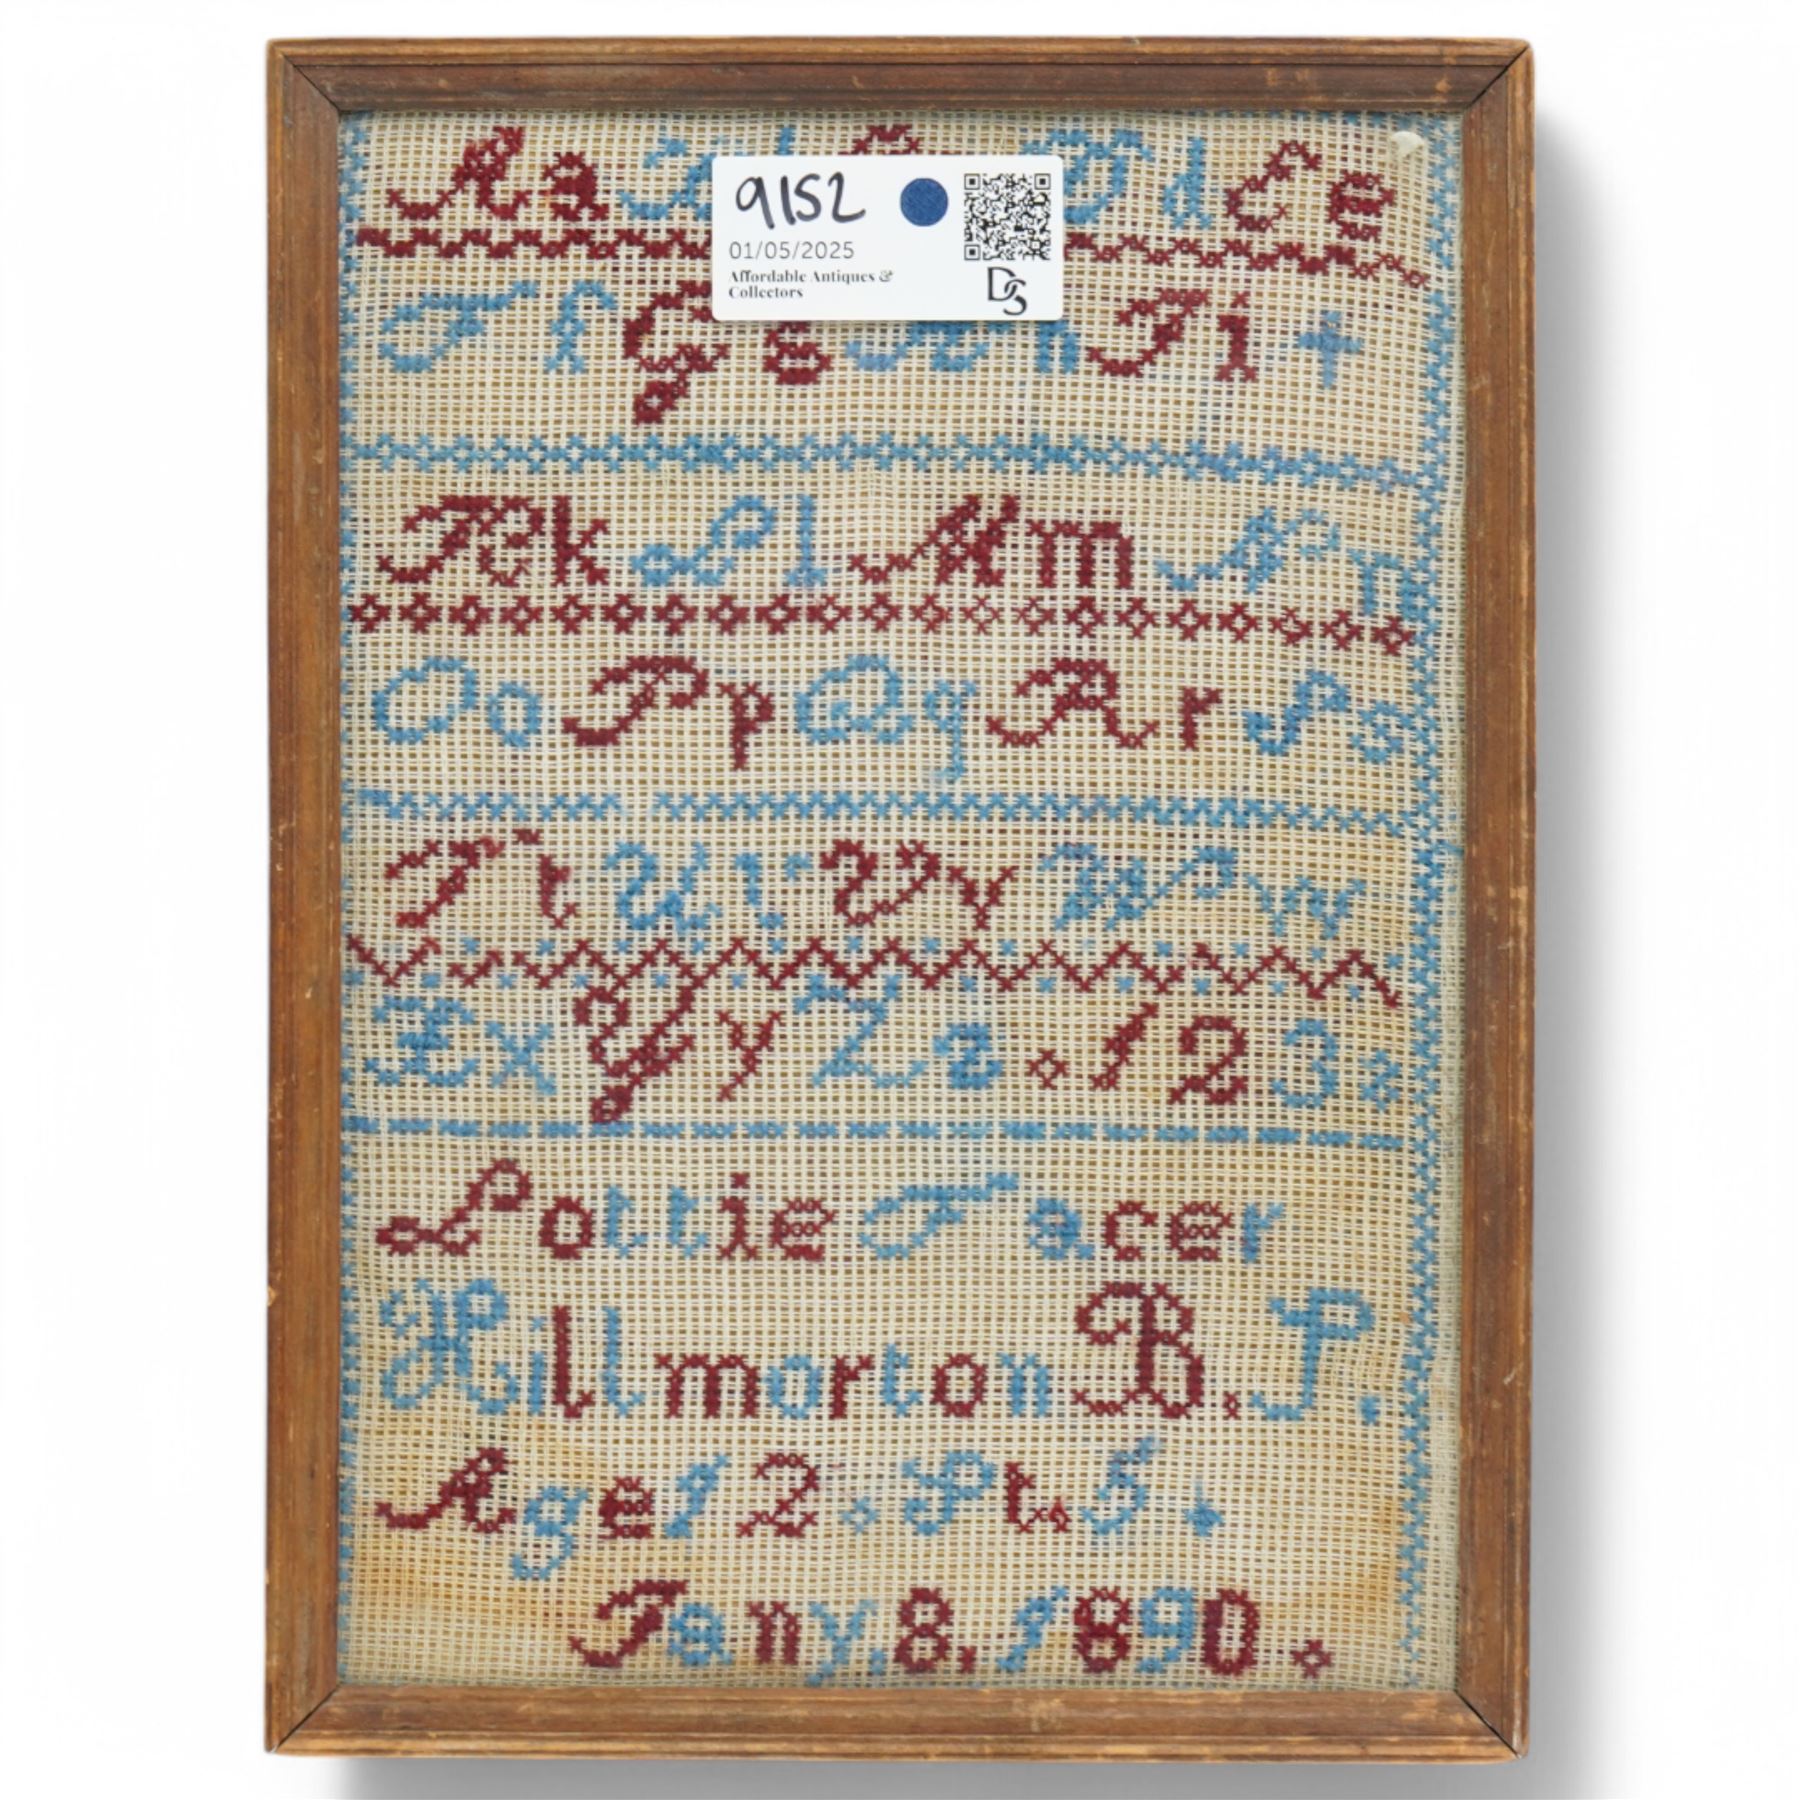 Aa Dd Ee
9152
01/05/2025
Affordable Antiques &
Collectors
DS
Ff Gg Hh Ii +
Kk Ll Mm Nn
Oo Pp Qq Rr Ss
Tt Uu Vv Ww
Xx Yy Zz . 1 2 3 &
Lottie Facer
Hillmorton B. S.
Age 12 . St. 5 .
Jany. 8, 1890 .